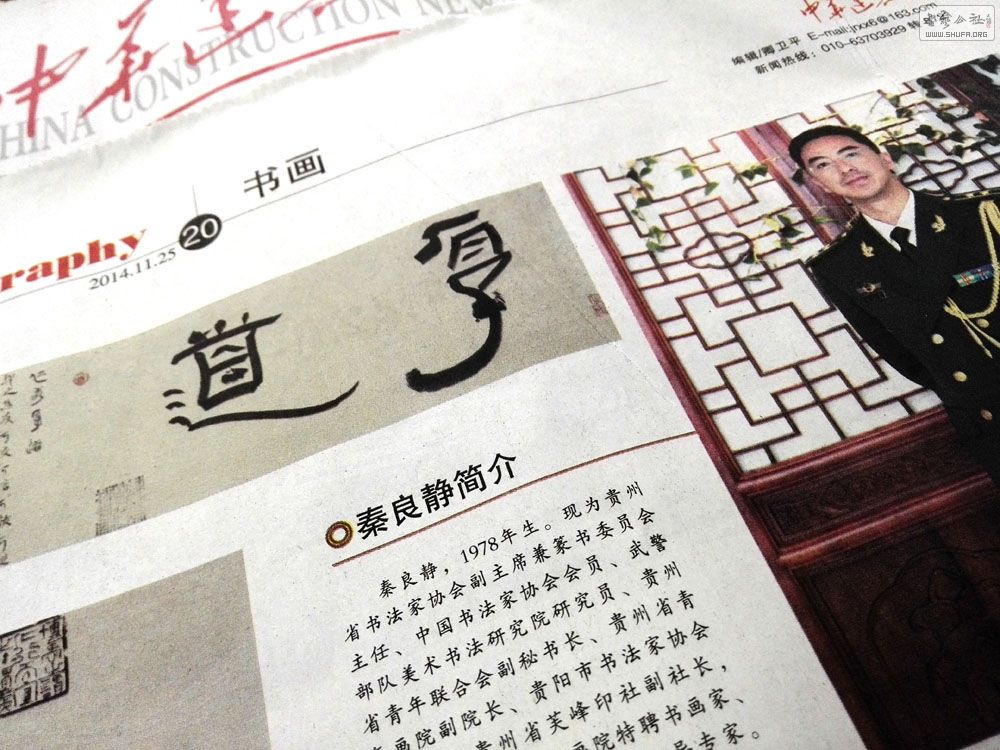 書法公社
WWW.SHUFA.ORG
中华建
HINA CONSTRUCTION NEW
中华建
编辑/卿卫平 E-mail:jrxx6@163.com
新闻热线:010-63703929 转
书画
raphy
2014.11.25
20
厚
道
秦良静简介
秦良静,1978年生。现为贵州
省书法家协会副主席兼篆书委员会
主任、中国书法家协会会员、武警
部队美术书法研究院研究员、贵州
省青年联合会副秘书长、贵州省青
画院副院长、贵阳市书法家协会
贵州省芙峰印社副社长,
画院特聘书画家、
专家。